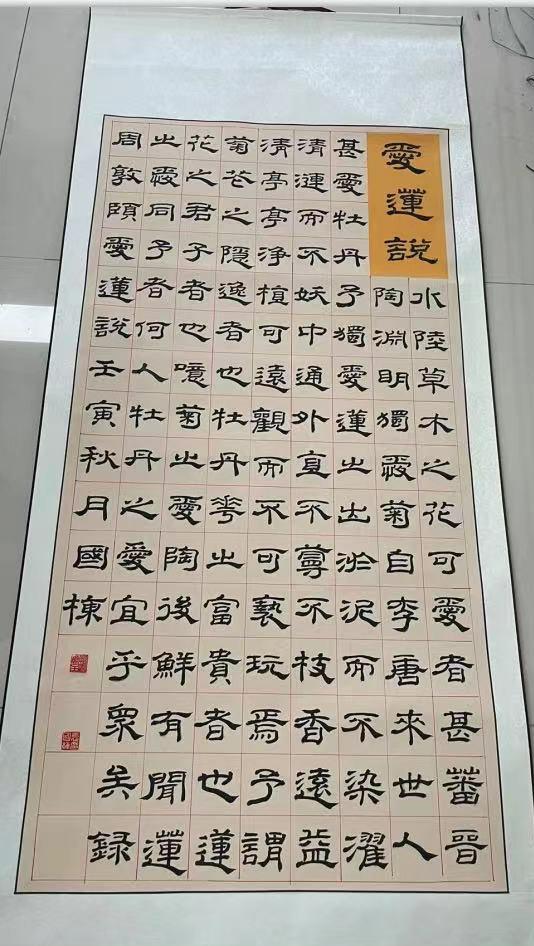 愛蓮說
水陸草木之花可愛者甚蕃晉
陶淵明獨愛菊自李唐來世人
甚愛牡丹予獨愛蓮之出淤泥而不染濯
清漣而不妖中通外直不蔓不枝香遠益
清亭亭淨植可遠觀而不可褻玩焉予謂
菊花之隱逸者也牡丹華之富貴者也蓮
花之君子者也噫菊之愛陶後鮮有聞蓮
之愛同予者何人牡丹之愛宜乎眾矣錄
周敦頤愛蓮說壬寅秋月國棟